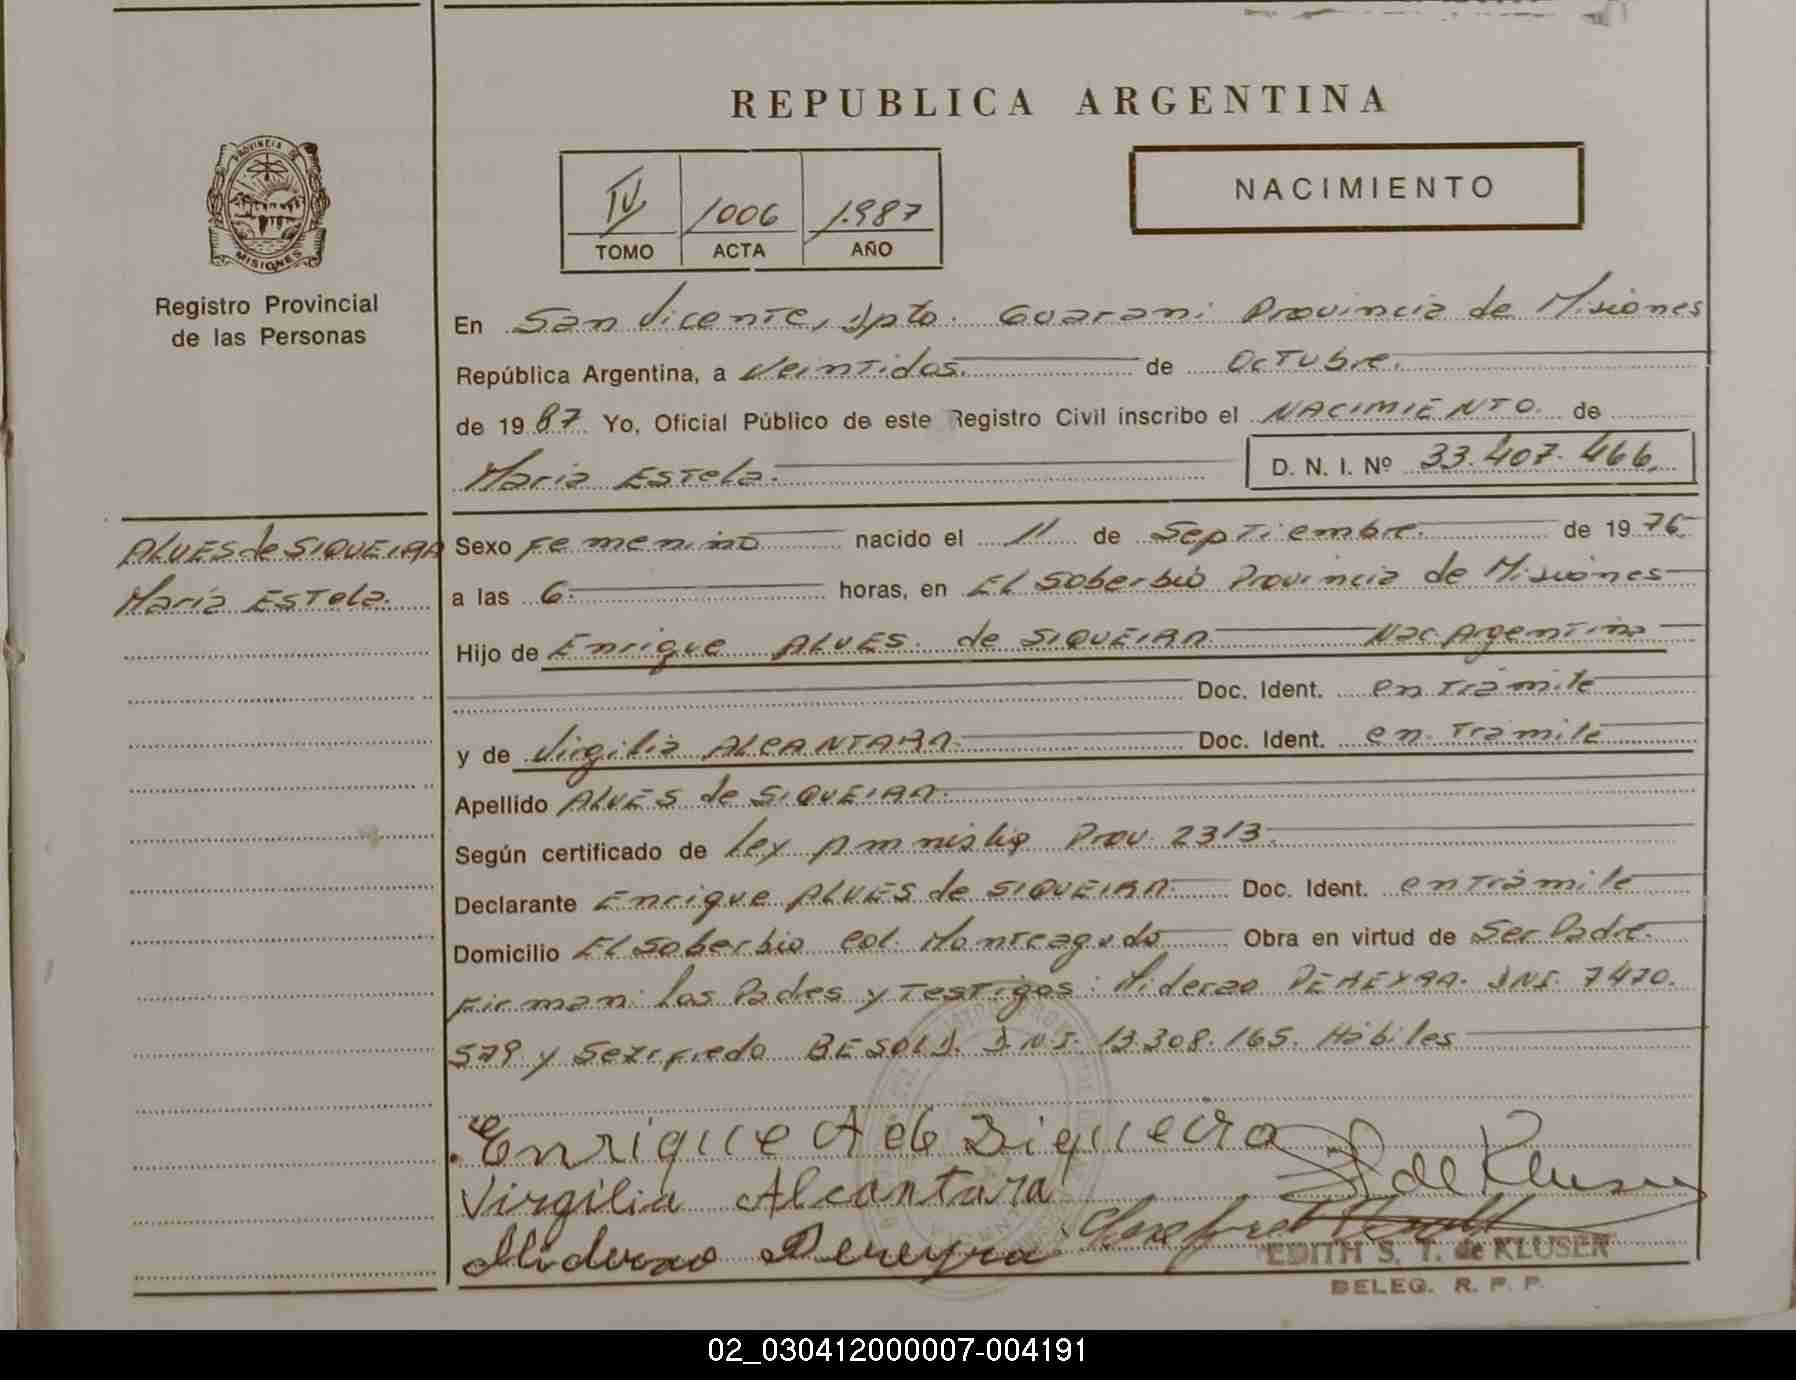 REPUBLICA ARGENTINA
PROVINCIA DE
MISIONES
Registro Provincial
de las Personas
IV 1006 1.987
TOMO ACTA AÑO
NACIMIENTO
En San Vicente, Dpto. Guarani Provincia de Misiones
República Argentina, a Veintidos. de Octubre.
de 1987 Yo, Oficial Público de este Registro Civil inscribo el NACIMIENTO. de
Maria Estela. D. N. I. Nº 33.407.466.
ALVES de SIQUEIRA
Maria Estela.
Sexo Femenino nacido el 11 de Septiembre. de 1976
a las 6. horas, en El Soberbio Provincia de Misiones
Hijo de Enrique ALVES de SIQUEIRA Nac Argentina
Doc. Ident. en Trámite
y de Virgilia ALCANTARA. Doc. Ident. en Trámite
Apellido ALVES de SIQUEIRA.
Según certificado de Ley Amnistia Prov. 2313.
Declarante Enrique ALVES de SIQUEIRA. Doc. Ident. en Trámite
Domicilio El Soberbio Col. Monteagudo Obra en virtud de Ser Padre.
Firman: los Padres y Testigos: PEREYRA. DNI. 7470.
579 y BESOLD. DNI. 13.308.165. Hábiles
Enrique A de Siqueira
Virgilia Alcantara
Pereyra
de Kluser
EDITH S. T. de KLUSER
DELEG. R. P. P.
02_030412000007-004191